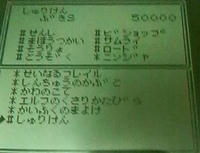 しゅりけん
ぶきS 50000
#せんし #ビショップ
#まほうつかい #サムライ
#そうりょ #ロード
#とうぞく #ニンジャ
*せいなるフレイル
*しんちゅうのかぶと
*かわのこて
*エルフのくさりかたびら
*かいふくのまよけ
#しゅりけん